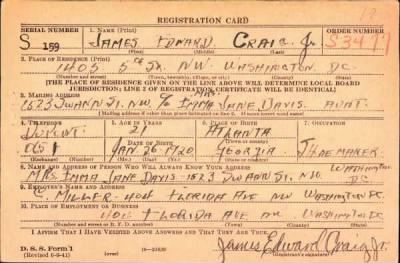 REGISTRATION CARD
SERIAL NUMBER 1. NAME (Print) ORDER NUMBER
S 159 JAMES EDWARD CRAIG Jr. S3411
(First) (Middle) (Last)
2. PLACE OF RESIDENCE (Print)
1405 5th St. N.W. WASHINGTON DC.
(Number and street) (Town, township, village, or city) (County) (State)
[THE PLACE OF RESIDENCE GIVEN ON THE LINE ABOVE WILL DETERMINE LOCAL BOARD
JURISDICTION; LINE 2 OF REGISTRATION CERTIFICATE WILL BE IDENTICAL]
3. MAILING ADDRESS
1523 SWANN ST. N.W. c/o MRS. EMMA JANE DAVIS. AUNT.
[Mailing address if other than place indicated on line 2. If same insert word same]
4. TELEPHONE 5. AGE IN YEARS 6. PLACE OF BIRTH 7. OCCUPATION
DUPONT. 21 ATLANTA
0651 DATE OF BIRTH (Town or county)
JAN 26 1920 GEORGIA. SHOEMAKER.
(Exchange) (Number) (Mo.) (Day) (Yr.) (State or country)
8. NAME AND ADDRESS OF PERSON WHO WILL ALWAYS KNOW YOUR ADDRESS WASHINGTON
MRS EMMA JANE DAVIS - 1523 SWANN ST. N.W. DC.
9. EMPLOYER'S NAME AND ADDRESS
C. MILLER - FLORIDA AVE NW WASHINGTON DC
10. PLACE OF EMPLOYMENT OR BUSINESS
FLORIDA AVE NW WASHINGTON DC.
(Street and number or R. F. D. number) (Town) (County) (State)
I AFFIRM THAT I HAVE VERIFIED ABOVE ANSWERS AND THAT THEY ARE TRUE.
D. S. S. Form 1
(Revised 6-9-41) (over) 16-21630 James Edward Craig Jr.